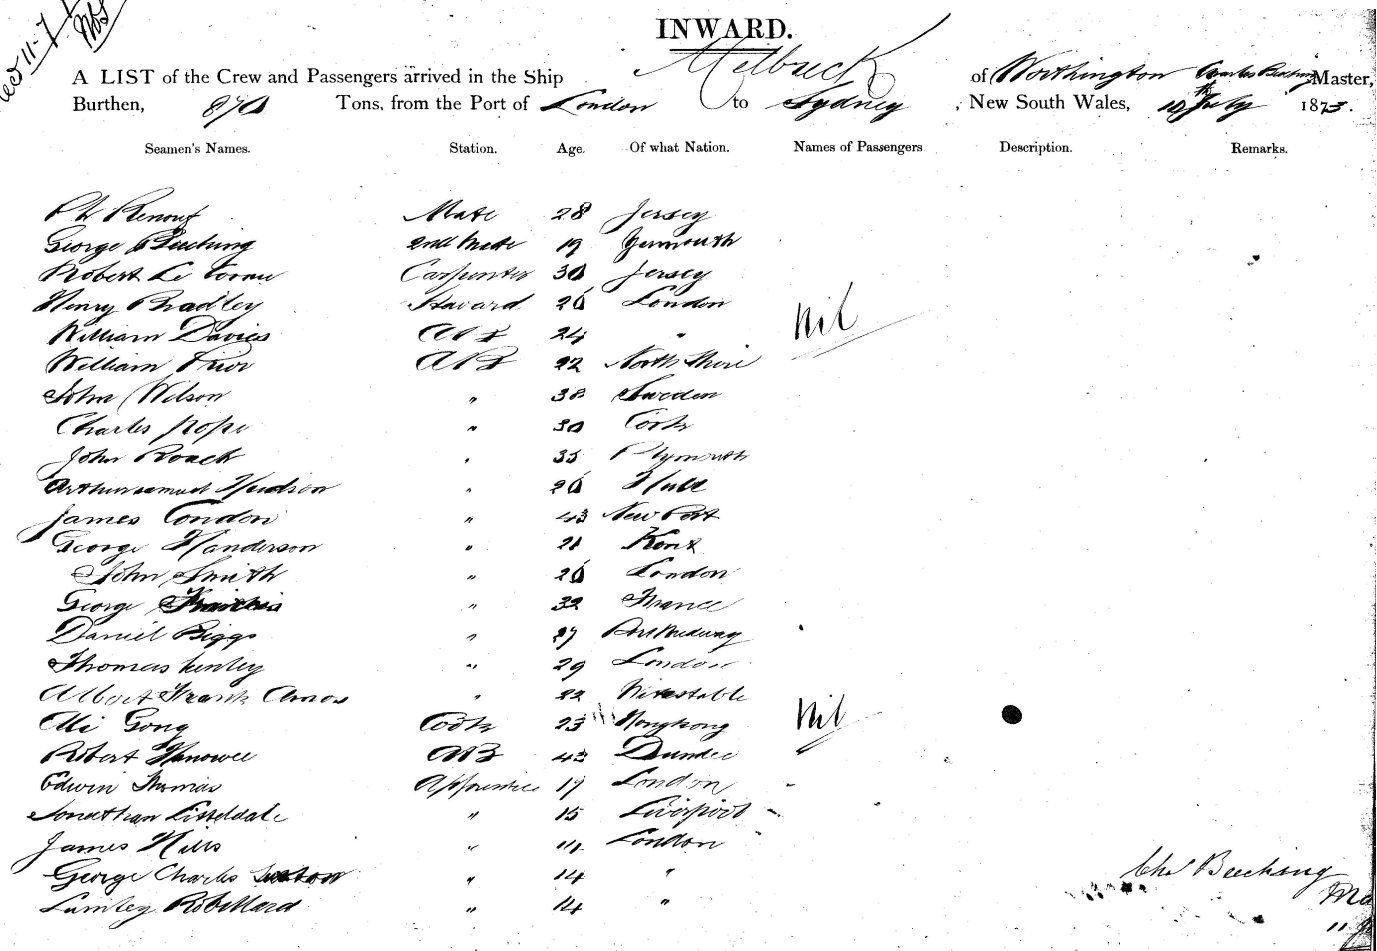 11-7
INWARD.
A LIST of the Crew and Passengers arrived in the Ship Melbreck of Worthington Charles Beeching Master,
Burthen, 870 Tons, from the Port of London to Sydney, New South Wales, 10th July 1873.
Seamen's Names. Station. Age. Of what Nation. Names of Passengers Description. Remarks.
Renouf Mate 28 Jersey
George Beeching 2nd Mate 19 Yarmouth
Robert Le Carpenter 30 Jersey
Henry Bradley Steward 26 London
William Davies 24 "
Nil
William Prior AB 22 North Shire
John Wilson " 38 Sweden
Charles Pope " 30 Cork
John Roach " 35 Plymouth
Arthur Samuel Hudson " 26 Hull
James Condon " 43 New Port
George Handerson " 21 Kent
John Smith " 26 London
George Francis " 32 France
Daniel Biggs " 27
Thomas Kenley " 29 London
Albert Frank Amos " 22 Witestable
Gong Cook 23 Hongkong Nil
Robert AB 43 Dundee
Edwin Thomas Apprentice 17 London
Jonathan " 15 Liverpool
James " London
George Charles " 14 "
Chs Beeching
Lumley Robillard " 14 "